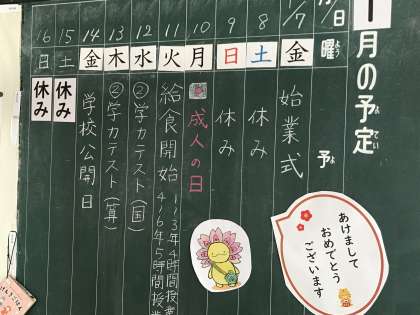 1月の予定
よてい
月/日
曜
よう
予
よ
1/7
金
始業式
8
土
休み
9
日
休み
10
月
成人の日
11
火
給食開始
1~3年4時間授業
4~6年5時間授業
12
水
②学力テスト(国)
13
木
②学力テスト(算)
14
金
学校公開日
15
土
休み
16
日
休み
あけまして
おめでとう
ございます